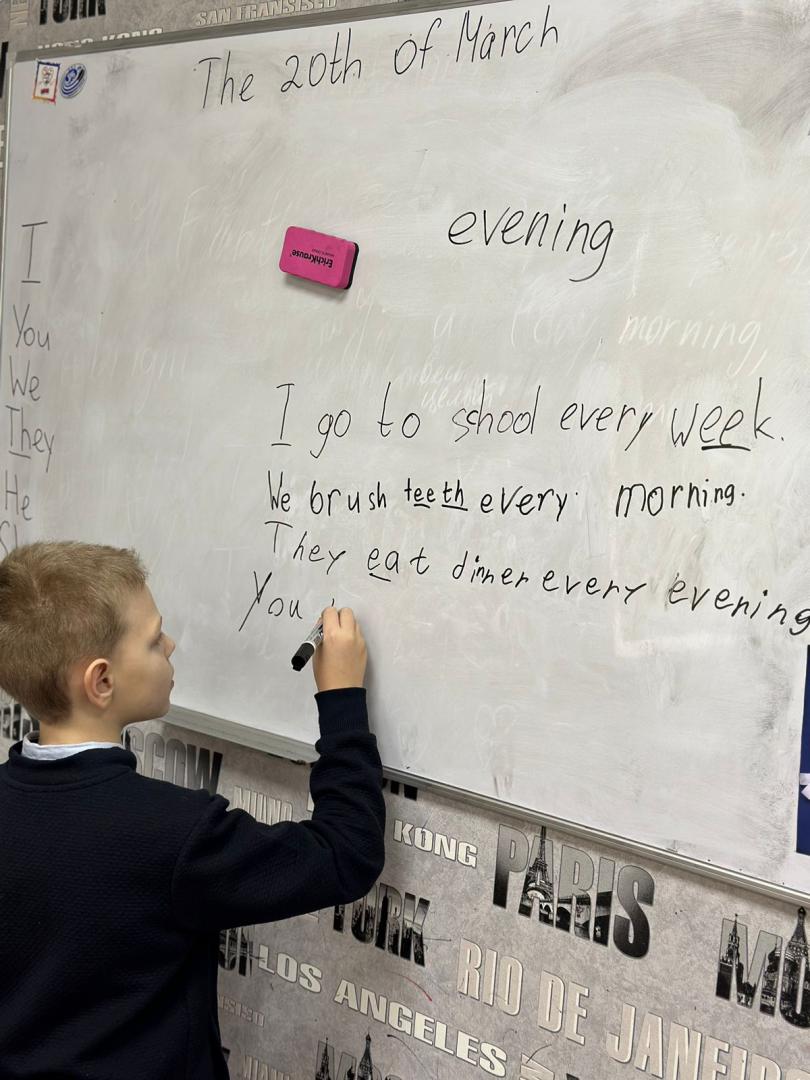 SAN FRANSISCO
HONG KONG
The 20th of March
evening
ErichKrause
I
You
We
They
He
morning,
I go to school every week.
We brush teeth every morning.
They eat dinner every evening
You
KONG
PARIS
YORK
LOS ANGELES
RIO DE JANEIRO